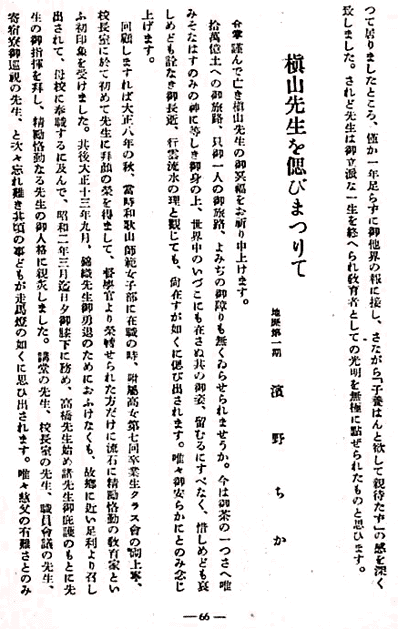 つて居りましたところ、僅か一年足らずに御他界の報に接し、さながら「子養はんと欲して親待たず」の感を深く
致しました。されど先生は御立派な一生を終へられ教育者としての光明を無極に點ぜられたものと思ひます。
槇山先生を偲びまつりて
地歴第一期 濱野ちか
謹んで亡き槇山先生の御冥福をお祈り申上げます。
拾萬億土への御旅路、只御一人の御旅路、よみぢの御障りも無くゐらせられませうか。今は御茶の一つさへ唯
みそなはすのみの神に等しき御身の上、世界中のいづこにも在さぬ其の御姿、留むるにすべなく、惜しめども哀
しめども詮なき御長逝、行雲流水の理と觀じても、尚在すが如くに偲び出されます。唯々御安らかにとのみ念じ
上げます。
回顧しますれば大正八年の秋、當時和歌山師範女子部に在職の時、附屬高女第七回卒業生クラス會の
校長室に於て初めて先生に拜顔の榮を得まして、督學官より榮轉せられた方だけに流石に精勵恪勤の教育家とい
ふ初印象を受けました。其後大正十三年九月、錦織先生御勇退のためにおふけなくも、故郷に近い足利より召し
出されて、母校に奉職するに及んで、昭和二年三月迄日夕御膝下に務め、高橋先生始め諸先生御庇護のもとに先
生の御指揮を拜し、精勵恪勤なる先生の御人格に親炙しました。講堂の先生、校長室の先生、職員會議の先生、
寄宿寮御巡視の先生、と次々忘れ難き其頃の事どもが走馬燈の如くに思ひ出されます。唯々慈父の有難さとのみ
—66—